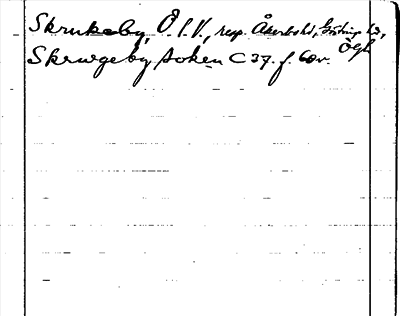 Skrukeby, Ö. l. V., resp. Åkerbo hd, Göstrings hd,
Ögl.
Skrwgeby soken C 37. f. 60v.